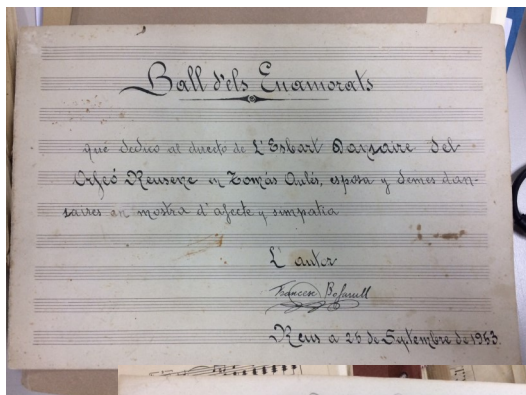 Ball d'els Enamorats
que dedico al directo de L'Esbart Dansaire del
Orfeó Reusenc en Tomás Aulés, esposa y demes dan-
saires en mostra d'afecte y simpatia
L'autor
Francesc Bofarull
Reus a 26 de Septembre de 1963.